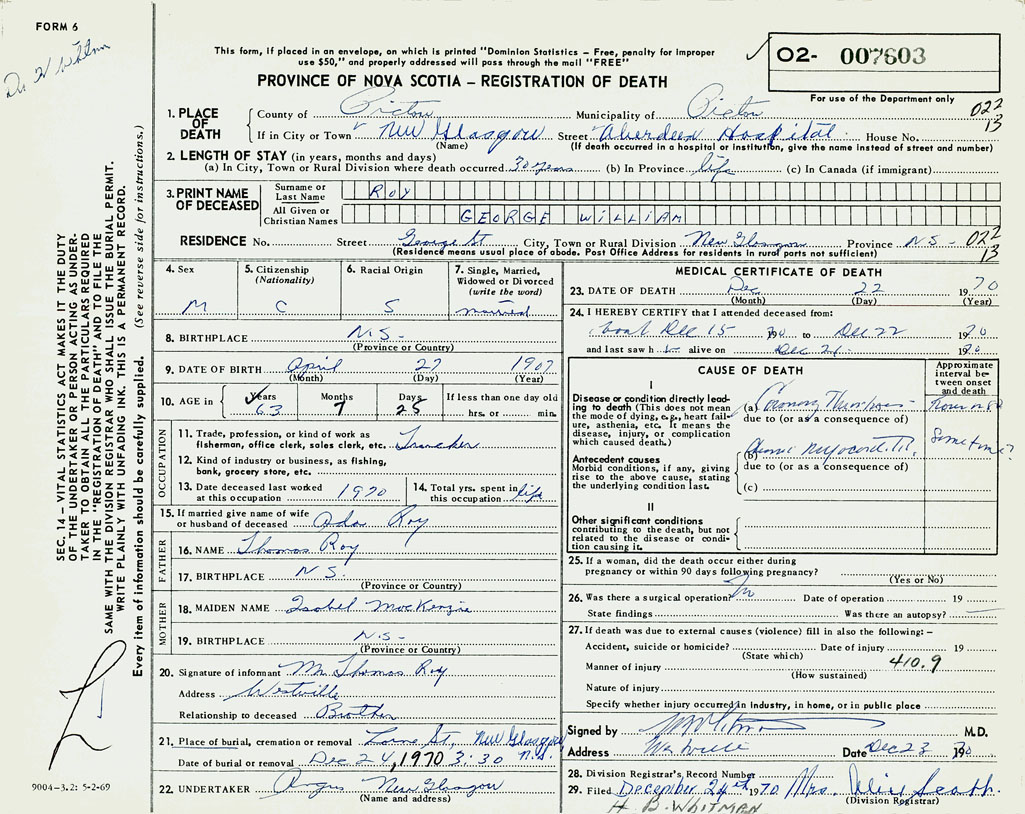 FORM 6
Dr. H Whitman
This form, if placed in an envelope, on which is printed "Dominion Statistics – Free, penalty for improper
use $50," and properly addressed will pass through the mail "FREE"
PROVINCE OF NOVA SCOTIA – REGISTRATION OF DEATH
O2- 007603
For use of the Department only
022
13
1. PLACE OF DEATH
County of Pictou Municipality of Pictou
If in City or Town New Glasgow Street Aberdeen Hospital House No.
(Name) (If death occurred in a hospital or institution, give the name instead of street and number)
2. LENGTH OF STAY (in years, months and days)
(a) In City, Town or Rural Division where death occurred 30 years (b) In Province life (c) In Canada (if immigrant)
3. PRINT NAME OF DECEASED
Surname or Last Name ROY
All Given or Christian Names GEORGE WILLIAM
RESIDENCE No. Street George St City, Town or Rural Division New Glasgow Province N.S- 022
13
(Residence means usual place of abode. Post Office Address for residents in rural parts not sufficient)
4. Sex M
5. Citizenship (Nationality) C
6. Racial Origin S
7. Single, Married, Widowed or Divorced (write the word) married
8. BIRTHPLACE N.S-
(Province or Country)
9. DATE OF BIRTH April 27 1907
(Month) (Day) (Year)
10. AGE in Years 63 Months 7 Days 25 If less than one day old hrs. or min.
OCCUPATION
11. Trade, profession, or kind of work as fisherman, office clerk, sales clerk, etc. Trucker
12. Kind of industry or business, as fishing, bank, grocery store, etc.
13. Date deceased last worked at this occupation 1970
14. Total yrs. spent in this occupation life
15. If married give name of wife or husband of deceased Roy
FATHER
16. NAME Thomas Roy
17. BIRTHPLACE N.S.
(Province or Country)
MOTHER
18. MAIDEN NAME Isobel MacKenzie
19. BIRTHPLACE N.S-
(Province or Country)
20. Signature of informant Mr Thomas Roy
Address Westville
Relationship to deceased Brother
21. Place of burial, cremation or removal St. New Glasgow
Date of burial or removal Dec 24, 1970 3:30 N.S.
22. UNDERTAKER Angus New Glasgow
(Name and address)
MEDICAL CERTIFICATE OF DEATH
23. DATE OF DEATH Dec 22 1970
(Month) (Day) (Year)
24. I HEREBY CERTIFY that I attended deceased from:
Dec 15 to Dec 22 1970
and last saw h alive on Dec 21 1970
CAUSE OF DEATH
Approximate interval between onset and death
I
Disease or condition directly leading to death (This does not mean the mode of dying, e.g., heart failure, asthenia, etc. It means the disease, injury, or complication which caused death.)
(a) Coronary Thrombosis
due to (or as a consequence of)
Antecedent causes
Morbid conditions, if any, giving rise to the above cause, stating the underlying condition last.
(b)
due to (or as a consequence of)
(c)
II
Other significant conditions
contributing to the death, but not related to the disease or condition causing it.
25. If a woman, did the death occur either during
pregnancy or within 90 days following pregnancy?
(Yes or No)
26. Was there a surgical operation? No Date of operation 19
State findings Was there an autopsy?
27. If death was due to external causes (violence) fill in also the following: –
Accident, suicide or homicide? Date of injury 19
(State which)
410.9
Manner of injury
(How sustained)
Nature of injury
Specify whether injury occurred in industry, in home, or in public place
Signed by M.D.
Address Westville Date Dec 23 1970
28. Division Registrar's Record Number
29. Filed December 24th 1970 Mrs.
(Division Registrar)
H B. WHITMAN
SEC. 14 – VITAL STATISTICS ACT MAKES IT THE DUTY
OF THE UNDERTAKER OR PERSON ACTING AS UNDER-
TAKER TO OBTAIN ALL THE PARTICULARS REQUIRED
IN THE "REGISTRATION OF DEATH" AND TO FILE THE
SAME WITH THE DIVISION REGISTRAR WHO SHALL ISSUE THE BURIAL PERMIT.
WRITE PLAINLY WITH UNFADING INK. THIS IS A PERMANENT RECORD.
Every item of information should be carefully supplied. (See reverse side for instructions.)
9004–3.2: 5-2-69